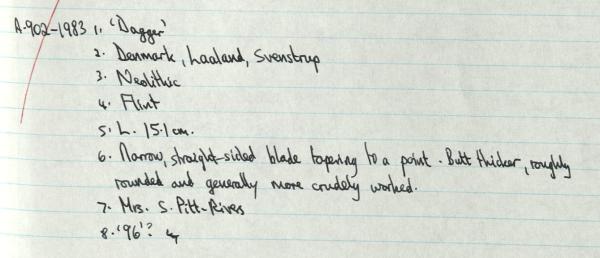 A.902-1983 1. 'Dagger'
2. Denmark, Laaland, Svenstrup
3. Neolithic
4. Flint
5. L. 15.1 cm.
6. Narrow, straight-sided blade tapering to a point. Butt thicker, roughly
rounded and generally more crudely worked.
7. Mrs. S. Pitt-Rivers
8. '96'?